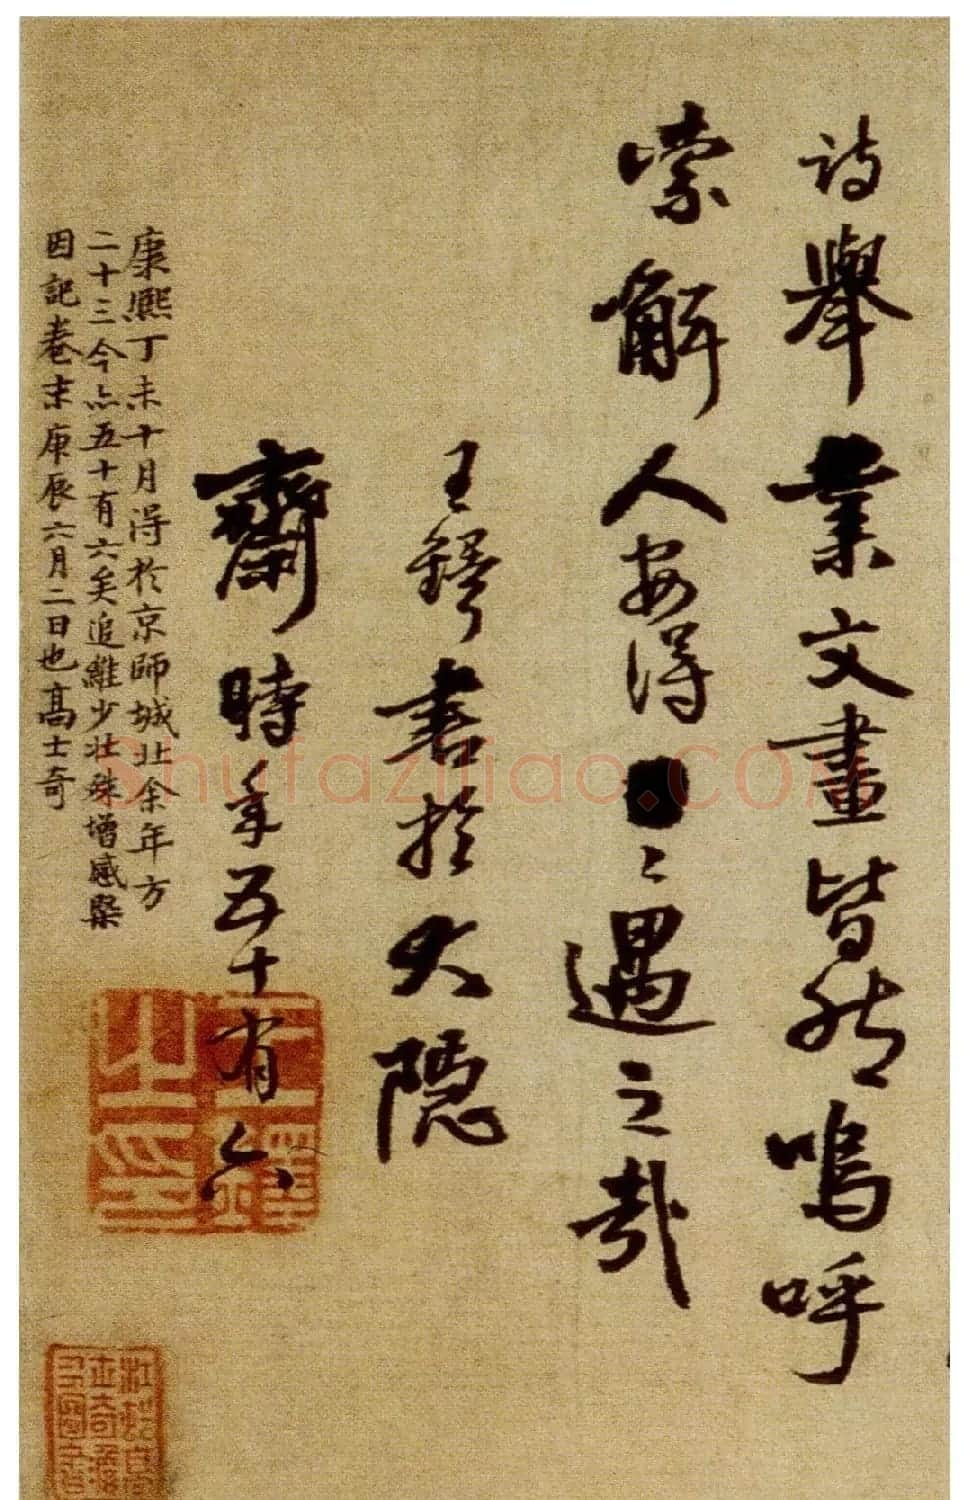 詩舉業文畫皆然嗚呼
索解人安得々遇之哉
王鐸書於大隱
齋時年五十有六
康熙丁未十月得於京師城北余年方
二十三今亦五十有六矣追維少壯殊增感槩
因記卷末庚辰六月二日也高士奇
王鐸之印
shufaziliao.com